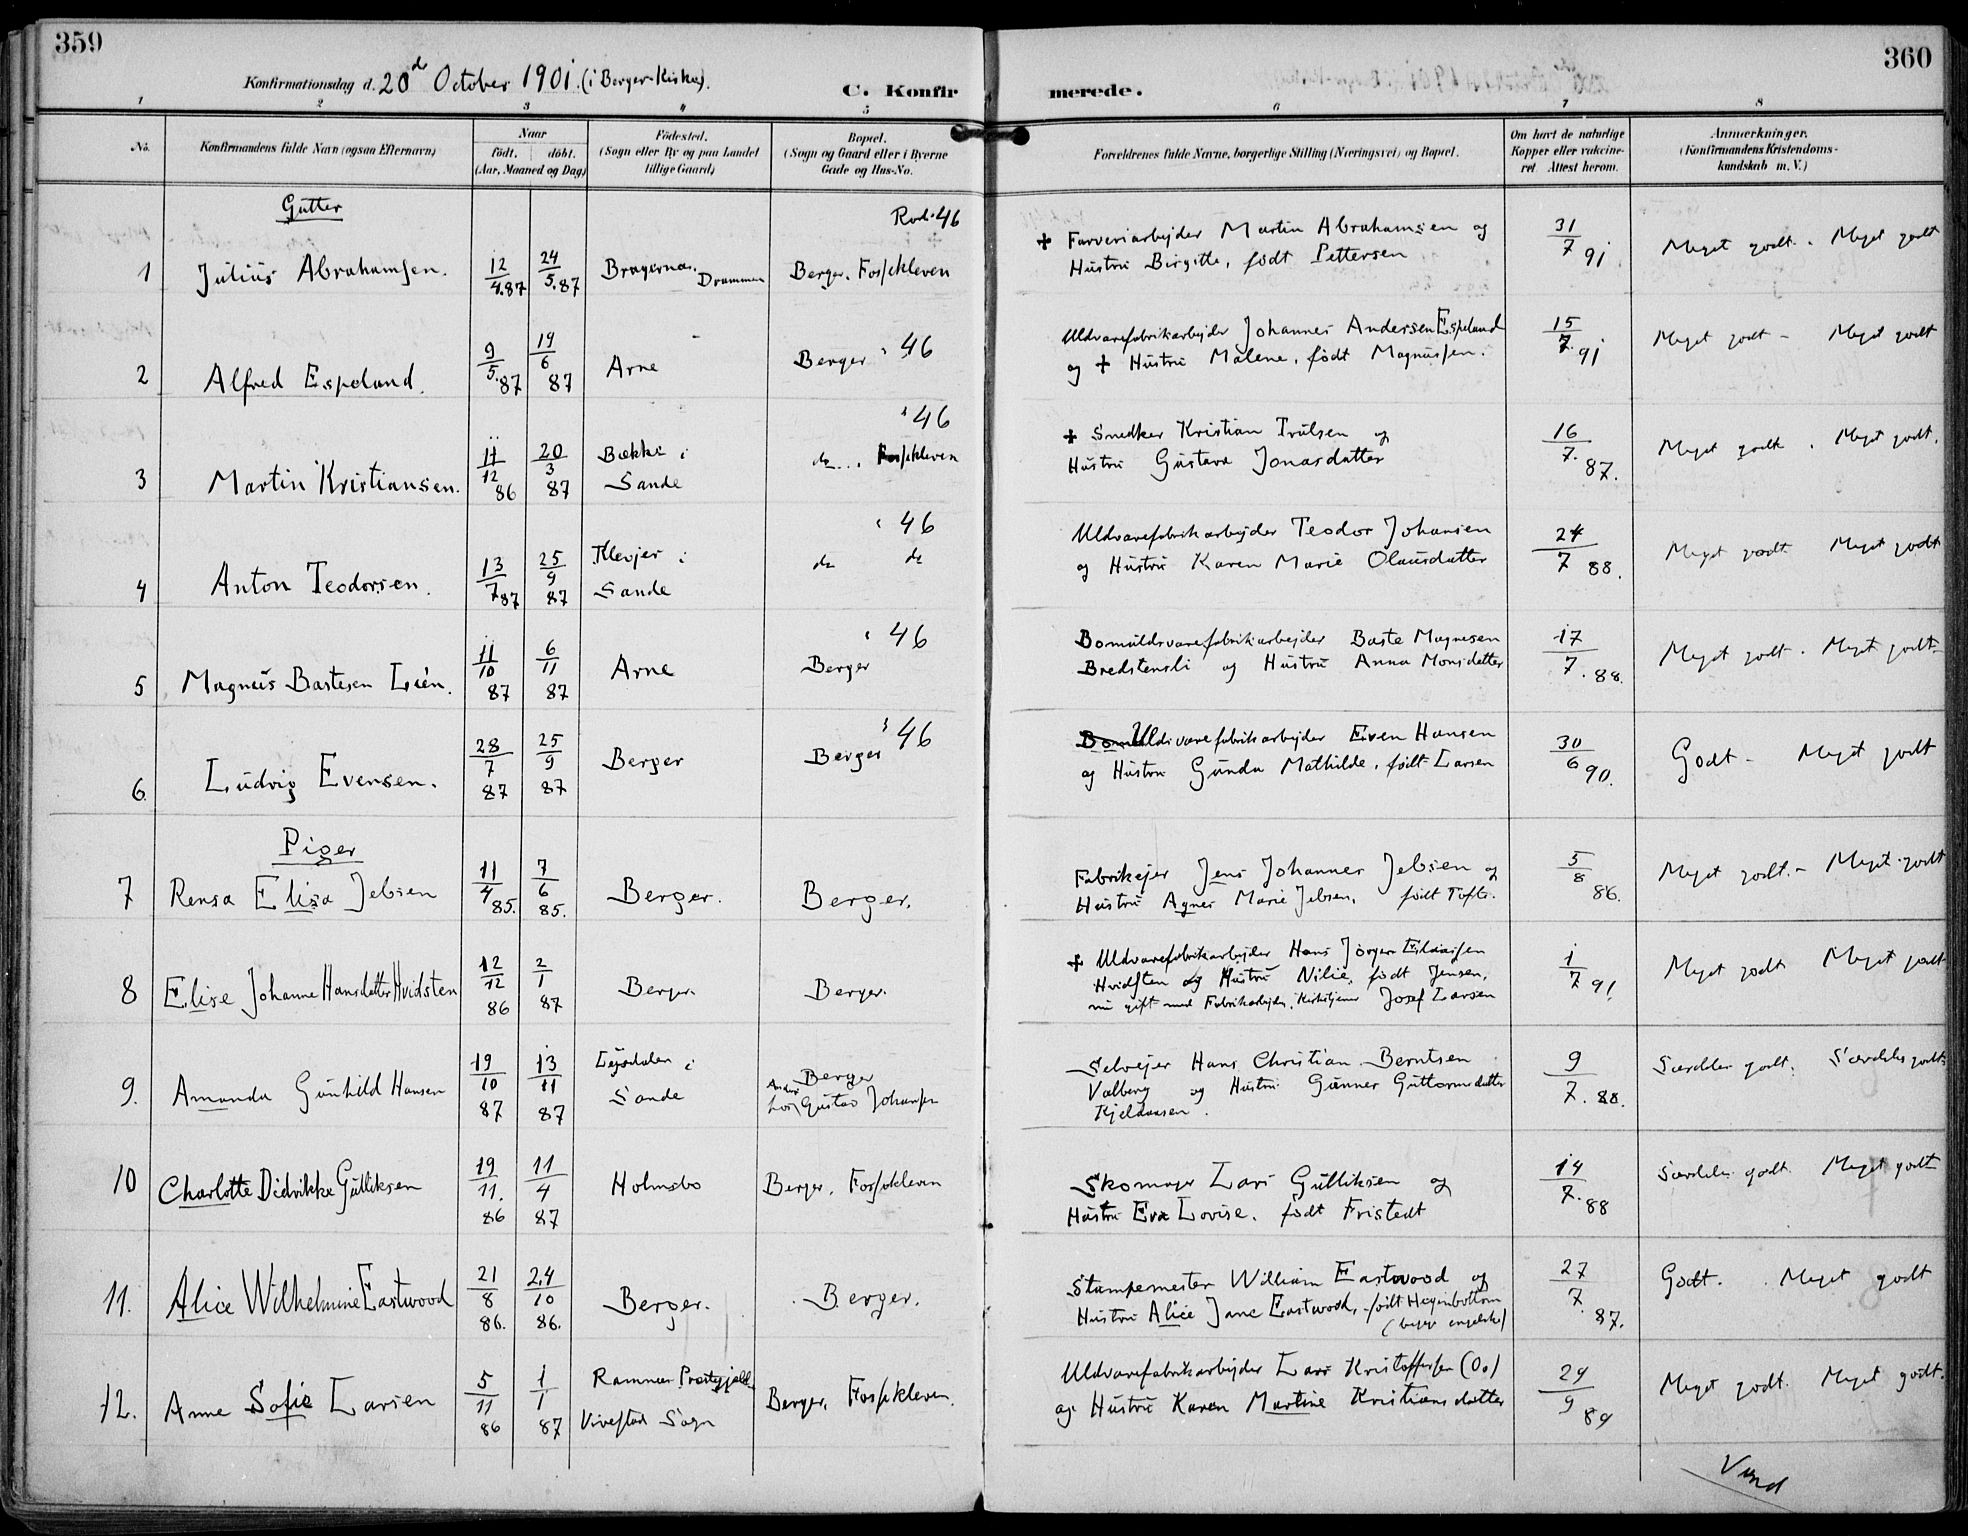 359
Konfirmationsdag d. 20d October 1901. (i Berger-Kirke).
C. Konfir
1 2 3 4 5
No.
Konfirmandens fulde Navn (ogsaa Efternavn)
Naar
født. døbt.
(Aar, Maaned og Dag)
Födested.
(Sogn eller By og paa Landet
tillige Gaard)
Bopæl.
(Sogn og Gaard eller i Byerne
Gade og Hus-No.
Gutter
1 Julius Abrahamsen. 12/4.87 24/5.87 Bragernæs, Drammen Berger, Fossekleven Rod. 46
2 Alfred Espeland. 9/5.87 19/6 87 Arne Berger 46
3 Martin Kristiansen. 11/12 86 20/3 87 Bække i Sande do. Fossekleven 46
4 Anton Teodorsen. 13/7 87 25/9 87 Klevjer i Sande do do 46
5 Magnus Bastesen Lien. 11/10 87 6/11 87 Arne Berger 46
6. Ludvig Evensen. 28/7 87 25/9 87 Berger Berger 46
Piger
7 Rensa Elisa Jebsen 11/4 85. 7/6 85. Berger. Berger.
8 Elise Johanne Hansdatter Hvidsten 12/12 86 2/1 87 Berger. Berger.
9. Amanda Gunhild Hansen 19/10 87 13/11 87 i Sande Berger Gustav Johansen
10 Charlotte Didrikke Gulliksen 19/11. 86 11/4 87 Holmsbo Berger, Fossekleven
11. Alice Wilhelmine Eastwood 21/8 86. 24/10 86. Berger. Berger.
12. Anne Sofie Larsen 5/11 86 1/1 87 Ramnæs Præstegjeld Vivestad Sogn Berger, Fossekleven.
360
merede.
6 7 8
Forældrenes fulde Navne, borgerlige Stilling (Næringsvei) og Bopæl.
Om havt de naturlige
Kopper eller vakcine-
ret. Attest herom.
Anmærkninger.
(Konfirmandens Kristendoms-
kundskab m. V.)
+ Farveriarbejder Martin Abrahamsen og
Hustru Birgitte, født Pettersen 31/7 91 Meget godt. Meget godt
Uldvarefabrikarbejder Johannes Andersen Espeland
og + Hustru Malene, født Magnussen. 15/7. 91 Meget godt - Meget godt
+ Snedker Kristian Trulsen og
Hustru Gustava Jonasdatter 16/7. 87. Meget godt. Meget godt.
Uldvarefabrikarbejder Teodor Johansen
og Hustru Karen Marie Olausdatter 24/7 88. Meget godt Meget godt
Bomuldsvarefabrikarbejder Baste Magnesen
Bredstensli og Hustru Anna Monsdatter 17/7. 88. Meget godt. Meget godt
Bomuldsvarefabrikarbejder Even Hansen
og Hustru Gunda Mathilde, født Larsen 30/6 90. Godt - Meget godt
Fabrikejer Jens Johannes Jebsen og
Hustru Agnes Marie Jebsen, født Tofte. 5/8 86. Meget godt. - Meget godt
+ Uldvarefabrikarbejder Hans Jörgen
Hvidsten og Hustru Nilie, født Jensen,
nu gift med Fabrikarbejder, Kirketjener Josef Larsen 1/7 91. Meget godt Meget godt
Selvejer Hans Christian Berntsen
Valberg og Hustru Gunner Guttormsdatter
Kjeldaasen. 9/7. 88. Særdeles godt. Særdeles godt.
Skomager Lars Gulliksen og
Hustru Eva Lovise, født Fristedt 14/7. 88 Særdeles godt. Meget godt
Stampemester William Eastwood og
Hustru Alice Jane Eastwood, født Hegenbottom
(begge engelske) 27/7 87. Godt. Meget godt
Uldvarefabrikarbejder Lars Kristoffersen
og Hustru Karen Martine Kristiansdatter 24/9 89 Meget godt. Meget godt.
Vend